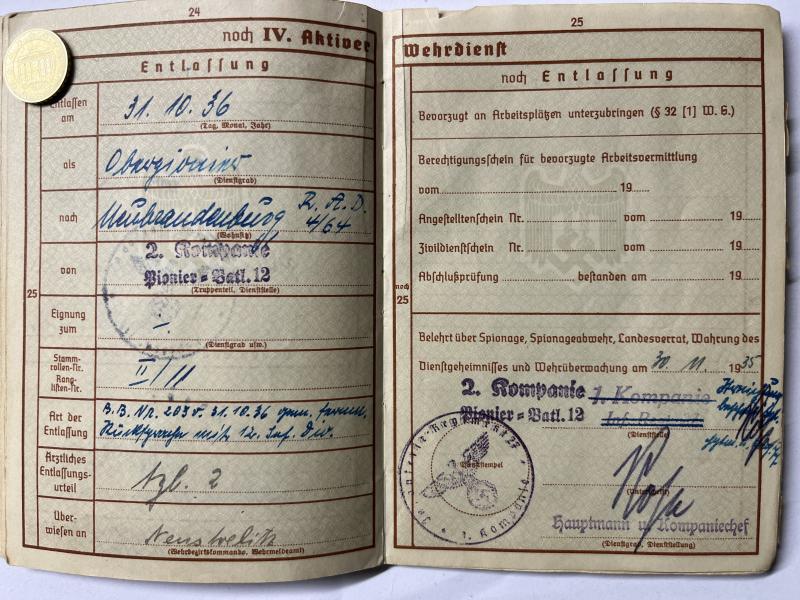 24
noch IV. Aktiver
Entlassung
Entlassen am
31. 10. 36
(Tag, Monat, Jahr)
als
Oberpionier
(Dienstgrad)
nach
Neubrandenburg R. A. D. 4/64
(Wohnsitz)
von
2. Kompanie
Pionier-Batl. 12
(Truppenteil, Dienststelle)
25
Eignung zum
(Dienstgrad usw.)
Stamm-
rollen-Nr.
Rang-
listen-Nr.
II/11
Art der Entlassung
B.B. Nr. 203 v. 31.10.36 gem.
Rücksprache mit 12. Inf. Div.
Ärztliches
Entlassungs-
urteil
Tgl. 2
Über-
wiesen an
Neustrelitz
(Wehrbezirkskommando, Wehrmeldeamt)
25
Wehrdienst
noch Entlassung
Bevorzugt an Arbeitsplätzen unterzubringen (§ 32 [1] W. G.)
Berechtigungsschein für bevorzugte Arbeitsvermittlung
vom 19
Angestelltenschein Nr. vom 19
Zivildienstschein Nr. vom 19
Abschlußprüfung bestanden am 19
noch
25
Belehrt über Spionage, Spionageabwehr, Landesverrat, Wahrung des
Dienstgeheimnisses und Wehrüberwachung am 30. 11. 1935
2. Kompanie 1. Kompanie
Pionier-Batl. 12
(Dienststelle)
Dienststempel
1. Kompanie
(Unterschrift)
Hauptmann u. Kompaniechef
(Dienstgrad, Dienststellung)